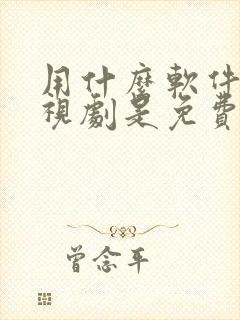 用什麼軟件
視劇是免費
曾念平